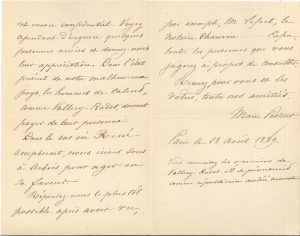 est encore confidentiel. Voyez
cependant d'urgence quelques
personnes amies et donnez-nous
leur appréciation. Dans l'état
présent de notre malheureux
pays, les hommes de talent,
comme Vallery-Radot doivent
payer de leur personne.
Dans le cas où René
accepterait, nous irions tous
à Arbois pour agir en
sa faveur.
Répondez-nous le plus tôt
possible, après avoir vu,
par exemple, M. Lefort, le
notaire Chauvin. Enfin
toutes les personnes que vous
jugerez à propos de consulter.
Recevez pour vous et les
vôtres, toutes nos amitiés.
Marie Pasteur
Paris le 28 août 1889.
Vous connaissez les opinions de
Vallery-Radot. Il se présenterait
comme républicain modéré